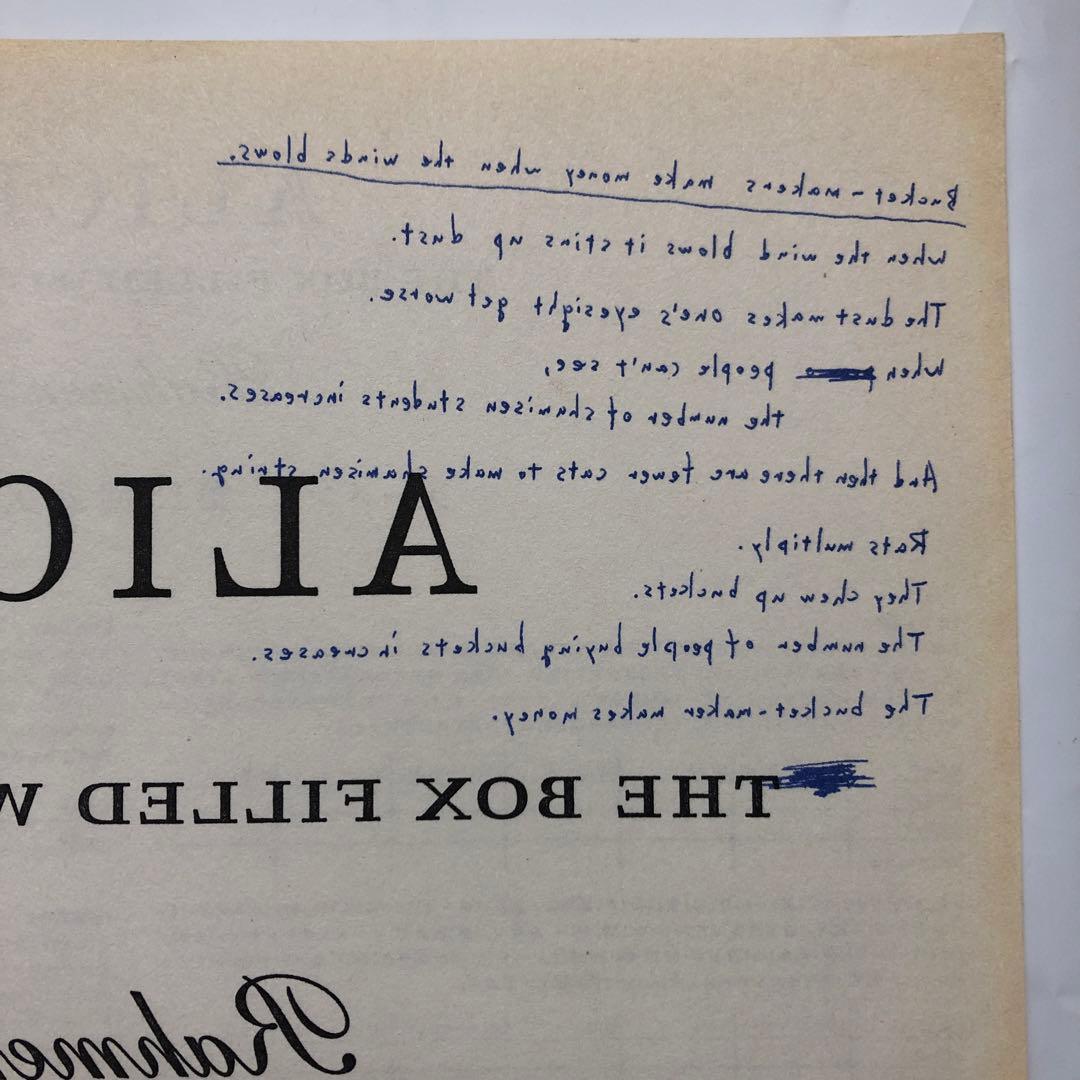 Bucket-makers make money when the winds blows.
When the wind blows it stirs up dust.
The dust makes one's eyesight get worse.
When people can't see,
the number of shamisen students increases.
And then there are fewer cats to make shamisen string.
ALIC
Rats multiply.
They chew up buckets.
The number of people buying buckets increases.
The bucket-maker makes money.
THE BOX FILLED W
Rahme